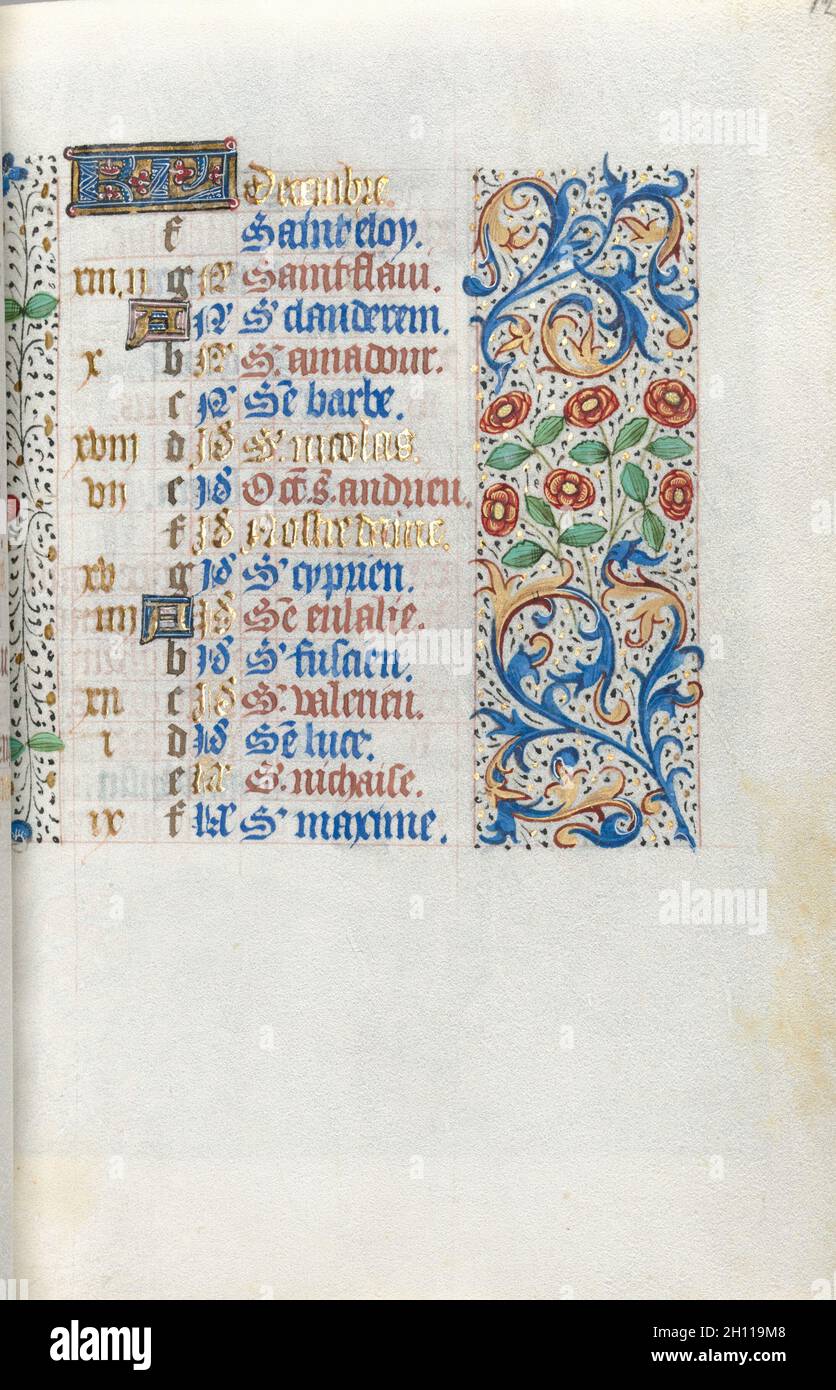 12
KL Decembre.
f Saint eloy.
xiii. ii g N Saint flavi.
A N S' clauderem.
x b N S. amadour.
c N Sē barbe.
xviii d id S' nicolas.
vii e id Oct. s. andrieu.
f id Nostre dame.
xv g id S' cyprien.
iiii A id Sē eulalie.
b id S' fuscien.
xii c id S' valerieu.
i d id Sē luce.
e S. nichaise.
ix f S' maxime.
alamy
Image ID: 2H119M8
www.alamy.com